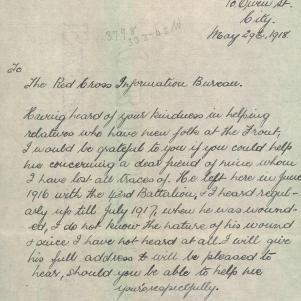 10, Owen St.
City.
May 29th, 1918.
To
The Red Cross Information Bureau.
Having heard of your kindness in helping
relatives who have men folk at the Front,
I would be grateful to you if you could help
me concerning a dear friend of mine whom
I have lost all traces of. He left here in June
1916 with the 43rd Battalion, & I heard regul-
arly up till July 1917, when he was wound-
ed, I do not know the nature of his wound
& since I have not heard at all I will give
his full address & will be pleased to
hear, should you be able to help me
yours respectfully.